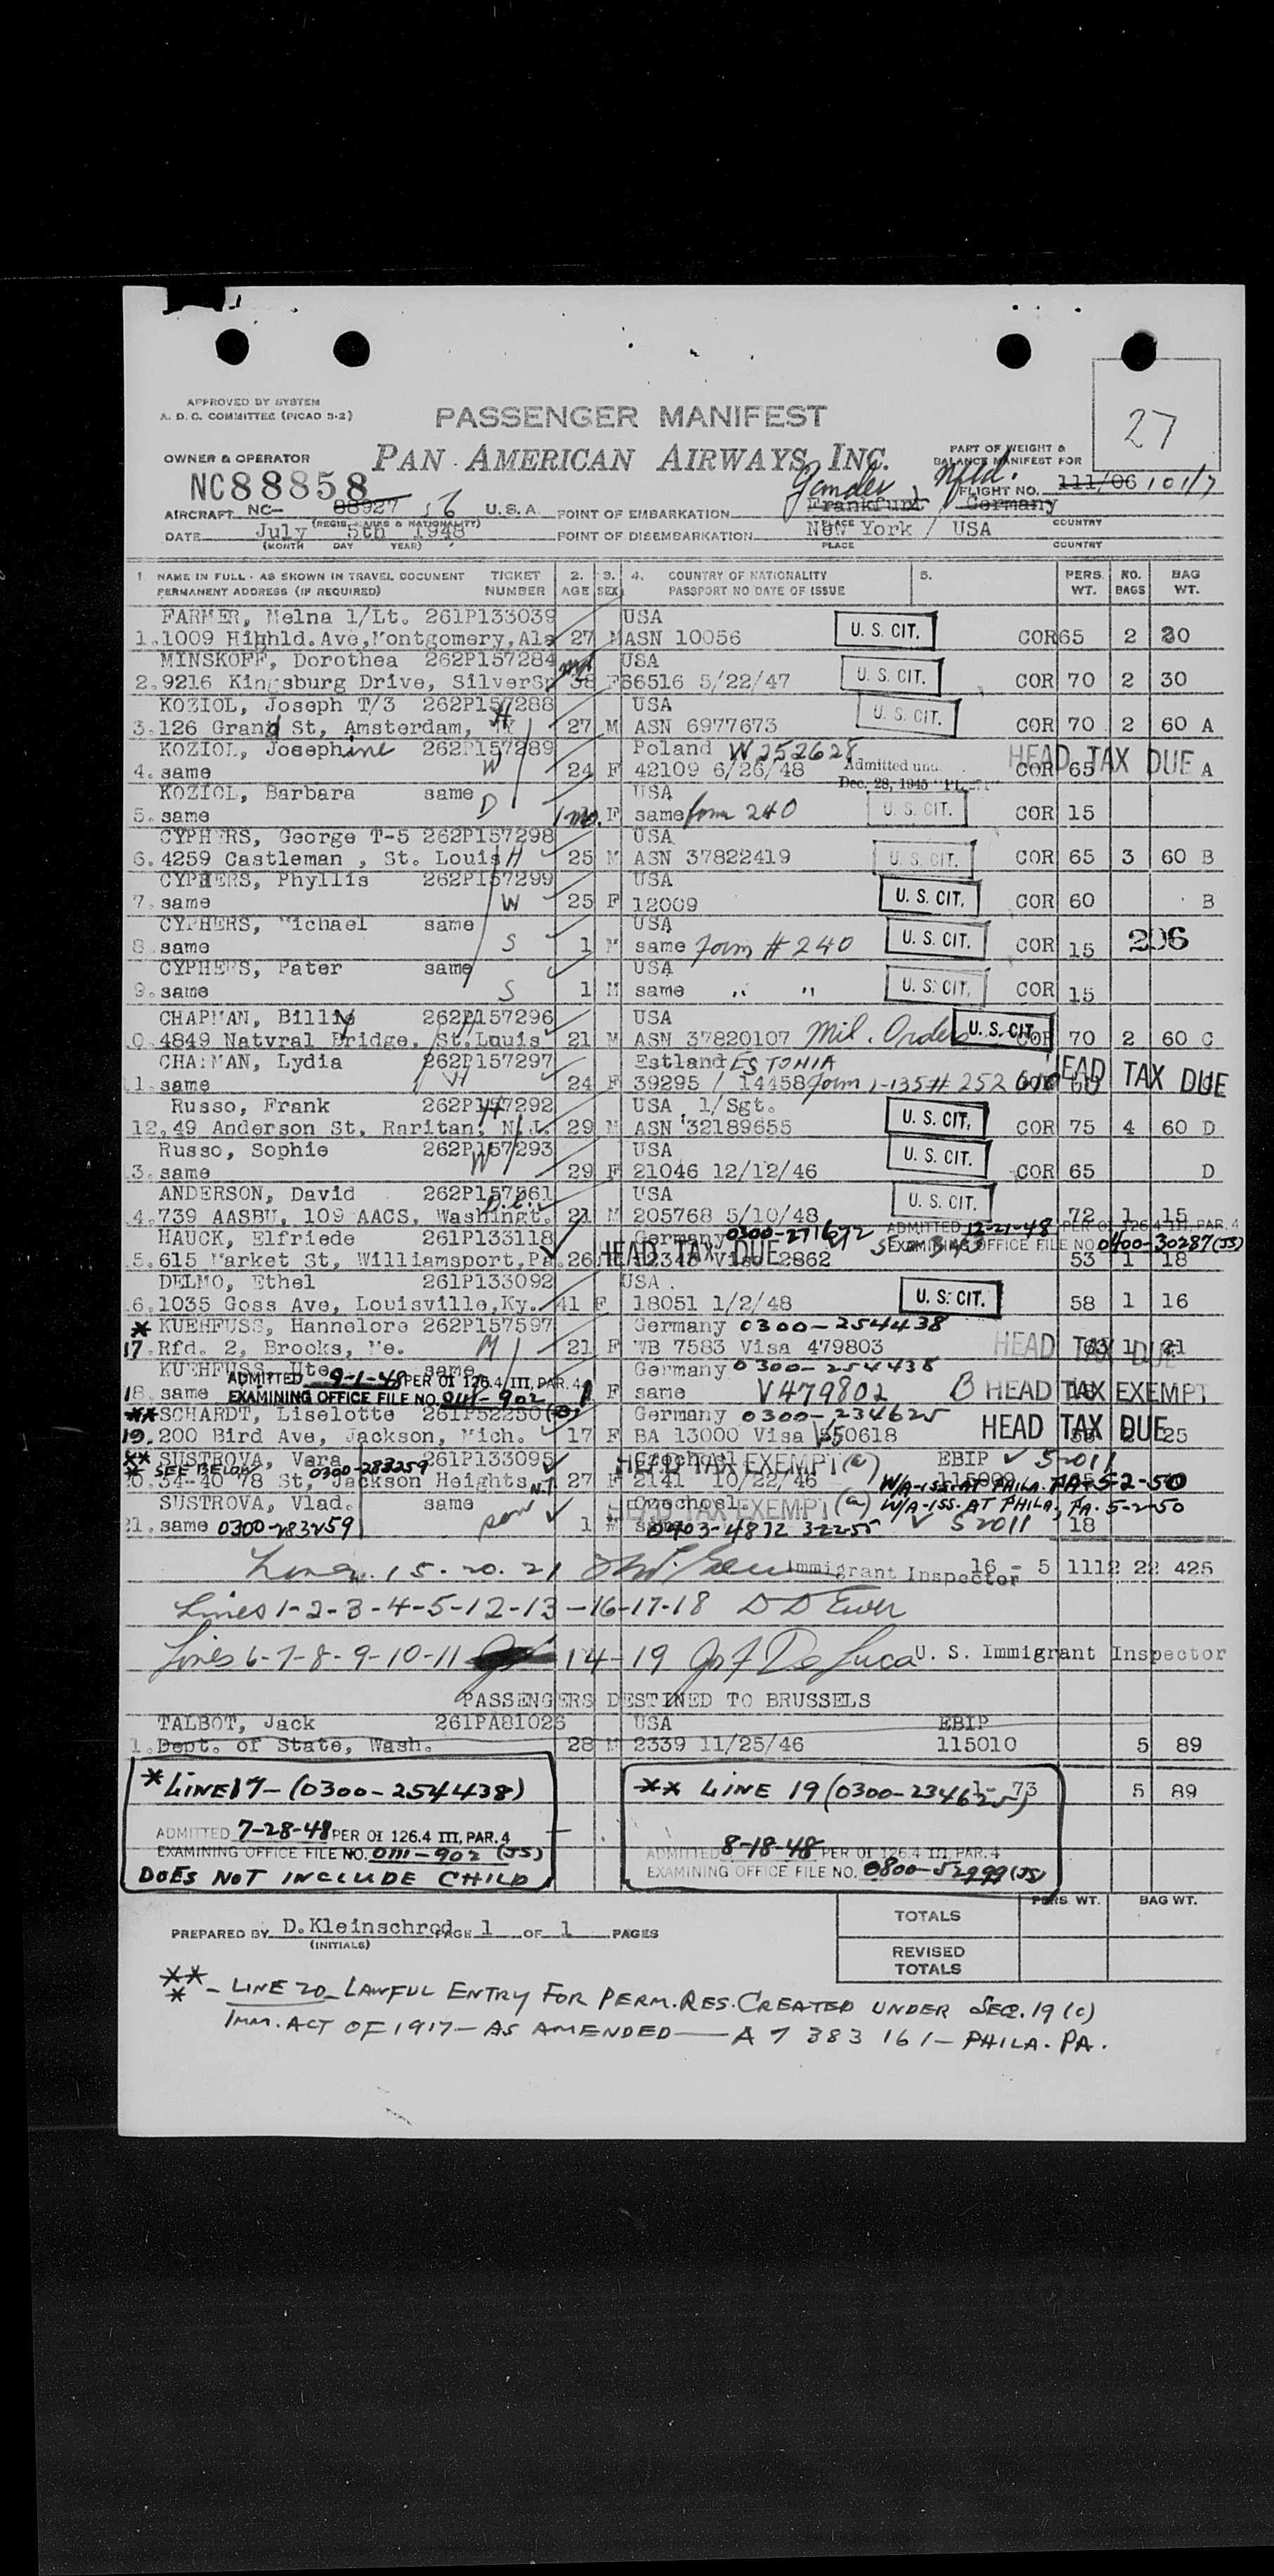 27
APPROVED BY SYSTEM
A. D. C. COMMITTEE (PICAO 3-2)
PASSENGER MANIFEST
OWNER & OPERATOR
PAN AMERICAN AIRWAYS, INC.
PART OF WEIGHT &
BALANCE MANIFEST FOR
NC88858
Gander, Nfld.
FLIGHT NO. 111/06 101/7
AIRCRAFT NC- 88927 U. S. A. POINT OF EMBARKATION Frankfurt Germany
(REGIS. MARKS & NATIONALITY) PLACE COUNTRY
DATE July 5th 1948 POINT OF DISEMBARKATION New York / USA
(MONTH DAY YEAR) PLACE COUNTRY
1. NAME IN FULL - AS SHOWN IN TRAVEL DOCUMENT TICKET 2. 3. 4. COUNTRY OF NATIONALITY 5. PERS. NO. BAG
PERMANENT ADDRESS (IF REQUIRED) NUMBER AGE SEX PASSPORT NO DATE OF ISSUE WT. BAGS WT.
FARMER, Melna 1/Lt. 261P133039 USA
1. 1009 Highld. Ave, Montgomery, Ala 27 M ASN 10056 U. S. CIT. COR 65 2 30
MINSKOFF, Dorothea 262P157284 USA
2. 9216 Kingsburg Drive, SilverSp 38 F 66516 5/22/47 U. S. CIT. COR 70 2 30
KOZIOL, Joseph T/3 262P157288 USA
3. 126 Grand St, Amsterdam, H 27 M ASN 6977673 U. S. CIT. COR 70 2 60 A
KOZIOL, Josephine 262P157289 Poland W252628 HEAD TAX DUE
4. same W 24 F 42109 6/26/48 Admitted COR 65 A
Dec. 28, 1945
KOZIOL, Barbara same USA
5. same D F same form 240 U. S. CIT. COR 15
CYPHERS, George T-5 262P157298 USA
6. 4259 Castleman , St. Louis H 25 M ASN 37822419 U. S. CIT. COR 65 3 60 B
CYPHERS, Phyllis 262P157299 USA
7. same W 25 F 12009 U. S. CIT. COR 60 B
CYPHERS, Michael same USA
8. same S 1 M same form # 240 U. S. CIT. COR 15 206
CYPHERS, Pater same USA
9. same S 1 M same " " U. S. CIT. COR 15
CHAPMAN, Billy 262P157296 USA
0. 4849 Natvral Bridge, St. Louis 21 M ASN 37820107 Mil. Orders U. S. CIT. COR 70 2 60 C
CHAPMAN, Lydia 262P157297 Estland ESTONIA HEAD TAX DUE
1. same W 24 F 39295 / 14458 form 1-135 # 252
Russo, Frank 262P157292 USA 1/Sgt.
12. 49 Anderson St, Raritan, N.J. H 29 M ASN 32189655 U. S. CIT. COR 75 4 60 D
Russo, Sophie 262P157293 USA
3. same W 29 F 21046 12/12/46 U. S. CIT. COR 65 D
ANDERSON, David 262P157561 USA
4. 739 AASBU, 109 AACS, Washingt. D.C. 21 M 205768 5/10/48 U. S. CIT. 72 1 15
HAUCK, Elfriede 261P133118 Germany 0300-271672 ADMITTED 12-21-48 PER OI 126.4 III, PAR. 4
EXAMINING OFFICE FILE NO. 0400-30287 (JS)
5. 615 Market St, Williamsport, Pa. 26 HEAD TAX DUE Visa 2862 53 1 18
DELMO, Ethel 261P133092 USA
6. 1035 Goss Ave, Louisville, Ky. 41 F 18051 1/2/48 U. S. CIT. 58 1 16
* KUEHFUSS, Hannelore 262P157597 Germany 0300-254438
17. Rfd. 2, Brooks, Me. M 21 F WB 7583 Visa 479803 HEAD TAX DUE 1 21
KUEHFUSS, Ute same Germany 0300-254438
ADMITTED 9-1-48 PER OI 126.4 III, PAR. 4
18. same EXAMINING OFFICE FILE NO. 0111-902 F same V479802 B HEAD TAX EXEMPT
** SCHARDT, Liselotte 261P52250 Germany 0300-234625 HEAD TAX DUE
19. 200 Bird Ave, Jackson, Mich. 17 F BA 13000 Visa 550618 25
** SUSTROVA, Vara 261P133095 Czechosl HEAD TAX EXEMPT (a) EBIP 5-2011
* SEE BELOW 0300-283259
0. 34-40 78 St, Jackson Heights N.Y. 27 F 2141 10/22/46 115009 W/A-ISS. AT PHILA. PA. 5-2-50
SUSTROVA, Vlad. same Czechosl HEAD TAX EXEMPT (a) W/A-ISS. AT PHILA, PA. 5-2-50
21. same 0300-283259 son 1 0403-4872 32255 52011 18
Lines 15-20-21 Immigrant Inspector 16 - 5 1112 22 425
Lines 1-2-3-4-5-12-13-16-17-18 D D Ewer
Lines 6-7-8-9-10-11 14-19 Jos F De Luca U. S. Immigrant Inspector
PASSENGERS DESTINED TO BRUSSELS
TALBOT, Jack 261PA81026 USA EBIP
1. Dept. of State, Wash. 28 M 2339 11/25/46 115010 5 89
* LINE 17 - (0300-254438)
** LINE 19 (0300-234625) 1- 73 5 89
ADMITTED 7-28-48 PER OI 126.4 III, PAR. 4
EXAMINING OFFICE FILE NO. 0111-902 (JS)
DOES NOT INCLUDE CHILD
ADMITTED 8-18-48 PER OI 126.4 III, PAR. 4
EXAMINING OFFICE FILE NO. 0800-52999 (JS)
PERS. WT. BAG WT.
TOTALS
PREPARED BY D. Kleinschrod PAGE 1 OF 1 PAGES
(INITIALS)
REVISED
TOTALS
*** - LINE 20 - LAWFUL ENTRY FOR PERM. RES. CREATED UNDER SEC. 19 (c)
IMM. ACT OF 1917 - AS AMENDED - A 7 383 161 - PHILA. PA.